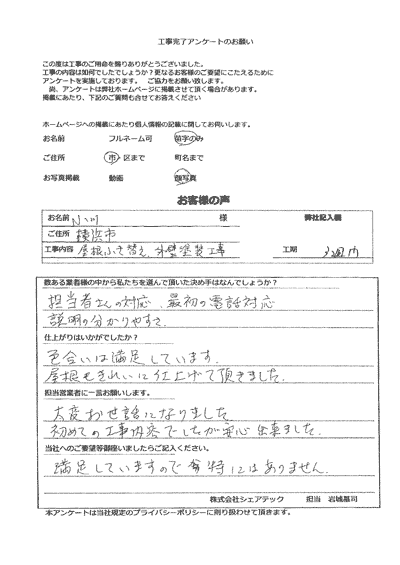 工事完了アンケートのお願い
この度は工事のご用命を賜りありがとうございました。
工事の内容は如何でしたでしょうか？更なるお客様のご要望にこたえるために
アンケートを実施しております。 ご協力をお願い致します。
尚、アンケートは弊社ホームページに掲載させて頂く場合があります。
掲載にあたり、下記のご質問も合せてお答えください
ホームページへの掲載にあたり個人情報の記載に関してお伺いします。
お名前 フルネーム可 苗字のみ
ご住所 市・区まで 町名まで
お写真掲載 動画 顔写真
お客様の声
お名前 N.I 様 弊社記入欄
ご住所 横浜市
工事内容 屋根ふき替え、外壁塗装工事 工期 3週間
数ある業者様の中から私たちを選んで頂いた決め手はなんでしょうか？
担当者さんの対応、最初の電話対応
説明の分かりやすさ
仕上がりはいかがでしたか？
色合いは満足しています。
屋根もきれいに仕上げて頂きました。
担当営業者に一言お願いします。
大変お世話になりました
初めての工事内容でしたが安心出来ました。
当社へのご要望等御座いましたらご記入ください。
満足していますので特にはありません。
株式会社シェアテック 担当 岩城基司
本アンケートは当社規定のプライバシーポリシーに則り扱わせて頂きます。